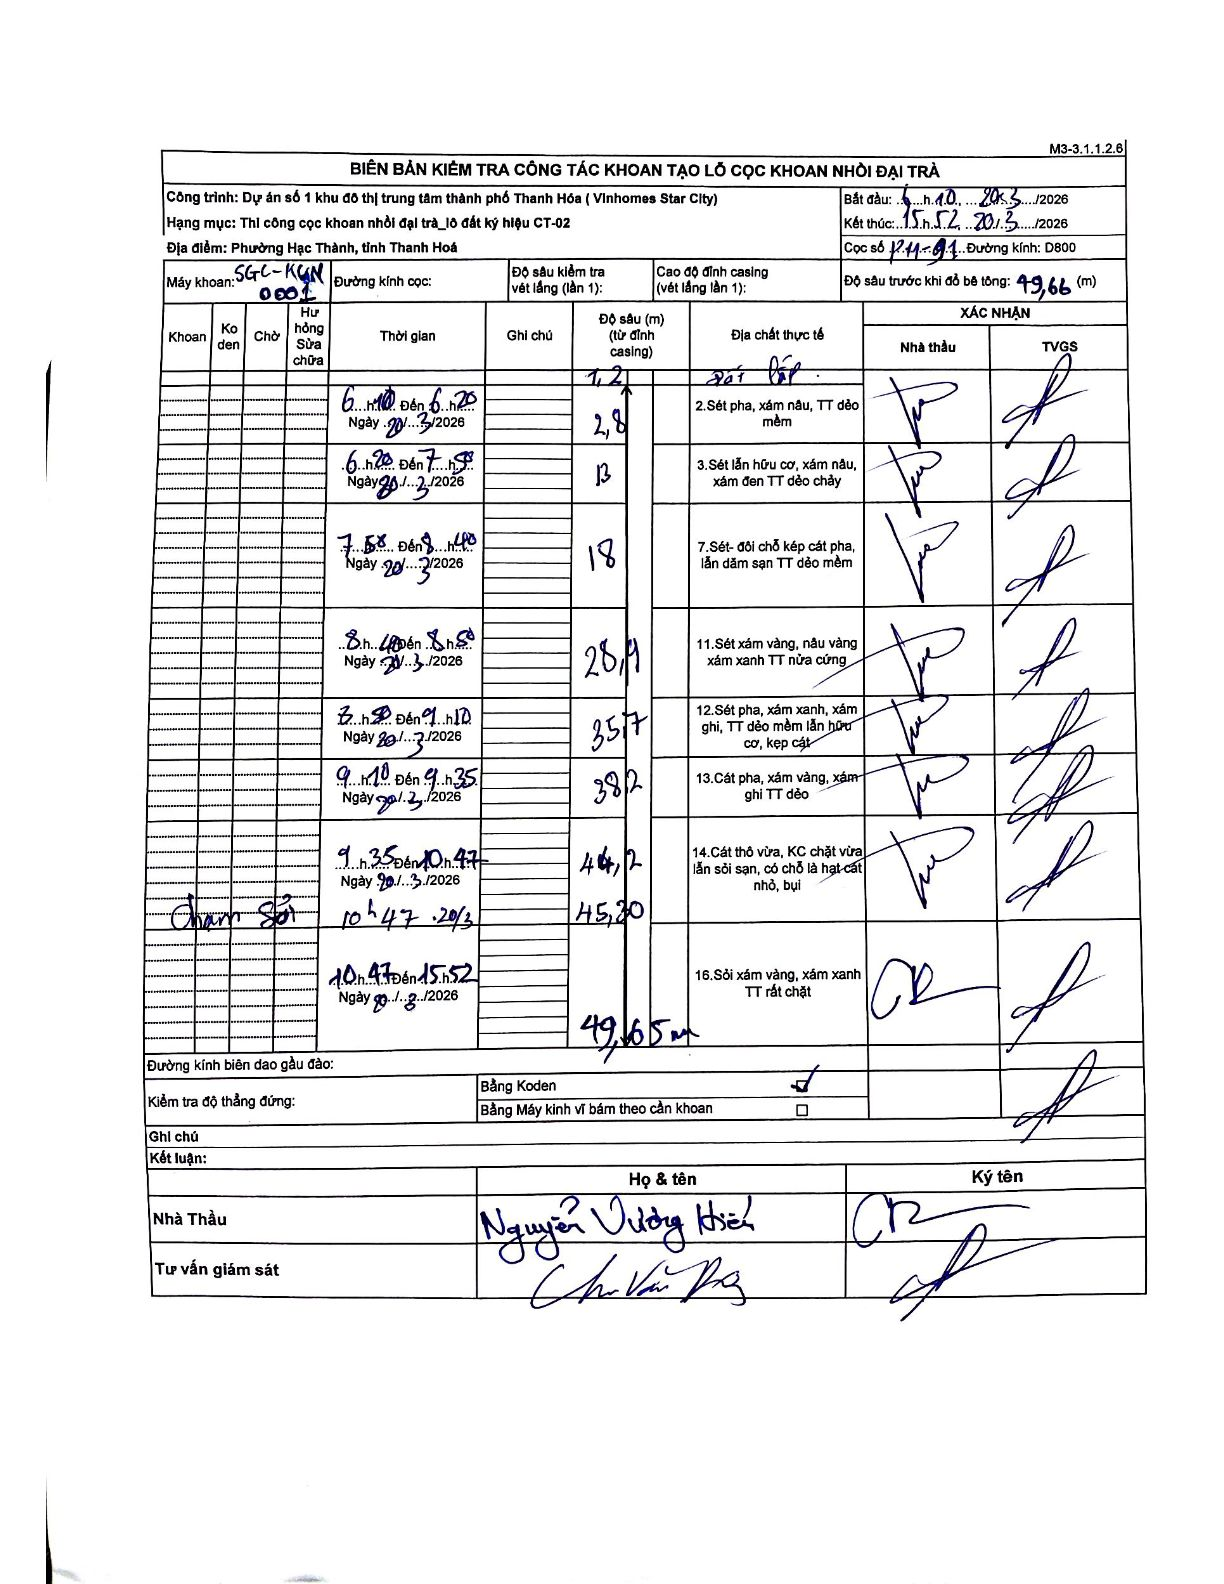 M3-3.1.1.2.6
BIÊN BẢN KIỂM TRA CÔNG TÁC KHOAN TẠO LỖ CỌC KHOAN NHỒI ĐẠI TRÀ
Công trình: Dự án số 1 khu đô thị trung tâm thành phố Thanh Hóa ( Vinhomes Star City)
Bắt đầu: 6 h 10 20/3/2026
Hạng mục: Thi công cọc khoan nhồi đại trà_lô đất ký hiệu CT-02
Kết thúc: 15h 52 20/3/2026
Địa điểm: Phường Hạc Thành, tỉnh Thanh Hoá
Cọc số Đường kính: D800
Máy khoan: SGC-KGN 0001
Đường kính cọc:
Độ sâu kiểm tra vét lắng (lần 1):
Cao độ đỉnh casing (vét lắng lần 1):
Độ sâu trước khi đổ bê tông: 49,66 (m)
Khoan
Ko den
Chờ
Hư hỏng Sửa chữa
Thời gian
Ghi chú
Độ sâu (m) (từ đỉnh casing)
Địa chất thực tế
XÁC NHẬN
Nhà thầu
TVGS
1,2 Đất lấp
6 h 10 Đến 6 h 20
Ngày 20/3/2026
2,8
2.Sét pha, xám nâu, TT dẻo mềm
6 h 20 Đến 7 h 58
Ngày 20/3/2026
13
3.Sét lẫn hữu cơ, xám nâu, xám đen TT dẻo chảy
7 58 Đến 8 h 40
Ngày 20/3/2026
18
7.Sét- đôi chỗ kép cát pha, lẫn dăm sạn TT dẻo mềm
8 h 40 Đến 8 h 50
Ngày 20/3/2026
28,9
11.Sét xám vàng, nâu vàng xám xanh TT nửa cứng
8 h 50 Đến 9 h 10
Ngày 20/3/2026
35,7
12.Sét pha, xám xanh, xám ghi, TT dẻo mềm lẫn hữu cơ, kẹp cát
9 h 10 Đến 9 h 35
Ngày 20/3/2026
38,2
13.Cát pha, xám vàng, xám ghi TT dẻo
9 h 35 Đến 10 h 47
Ngày 20/3/2026
44,2
14.Cát thô vừa, KC chặt vừa lẫn sỏi sạn, có chỗ là hạt cát nhỏ, bụi
Chạm Sỏi 10h47 20/3 45,20
10 h 47 Đến 15 h 52
Ngày 20/3/2026
49,65 m
16.Sỏi xám vàng, xám xanh TT rất chặt
Đường kính biên dao gầu đào:
Kiểm tra độ thẳng đứng:
Bằng Koden
Bằng Máy kinh vĩ bám theo cần khoan
Ghi chú
Kết luận:
Họ & tên
Ký tên
Nhà Thầu
Nguyễn Vương Hiếu
Tư vấn giám sát